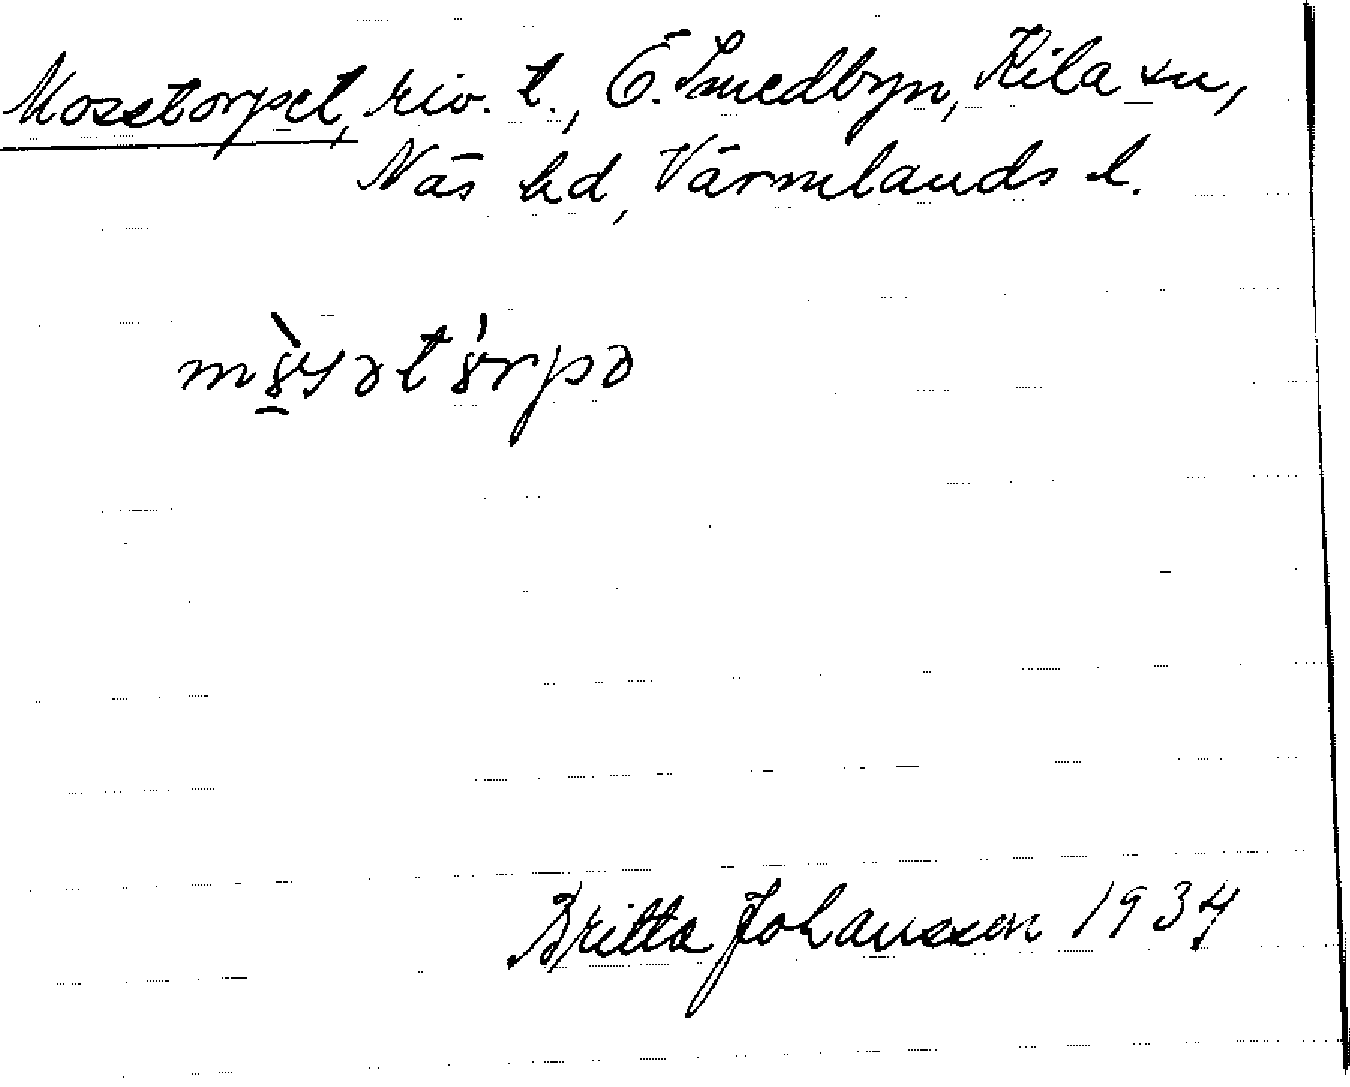 Mosstorpet, riv. t., Ö. Smedbyn, Kila sn,
Näs hd, Värmlands l.
Britta Johansson 1934